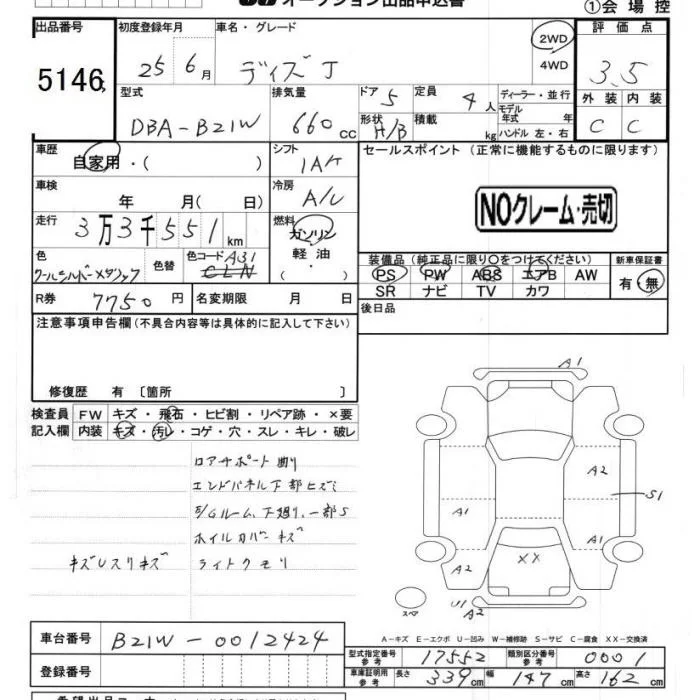 オークション出品申込書
①会場控
出品番号 初度登録年月 車名・グレード 2WD 評価点
5146 25 6月 デイズ J 4WD 3.5
型式 排気量 ドア 5 定員 4人 ディーラー・並行 外装 内装
DBA-B21W 660cc 形状 H/B 積載 kg モデル年式 年 C C
ハンドル 左・右
車歴 自家用・( ) シフト IAT セールスポイント(正常に機能するものに限ります)
車検 年 月(日) 冷房 A/C
NOクレーム・売切
走行 3万3千551km 燃料 ガソリン
軽油・( )
色 クールシルバーメタリック 色替 色コード A31 CLN
装備品(純正品に限り〇をつけてください) 新車保証書
PS PW ABS エアB AW 有・無
SR ナビ TV カワ
R券 7750円 名変期限 月 日 後日品
注意事項申告欄(不具合内容等は具体的に記入して下さい)
修復歴 有〔箇所 〕
検査員記入欄 FW キズ・飛石・ヒビ割・リペア跡・×要
内装 キズ・汚レ・コゲ・穴・スレ・キレ・破レ
ロアサポート曲り
エンドパネル下部ヒズミ
E/Gルーム、下廻り、一部S
ホイルカバーキズ
キズUスリキズ ライトクモリ
A1
A2
S1
A1 A1
XX
A2
スペア U1 A2
A-キズ E-エクボ U-凹み W-補修跡 S-サビ C-腐食 XX-交換済
車台番号 B21W-0012424
型式指定番号 参考 17552 類別区分番号 参考 0001
登録番号 車庫証明用 参考 長さ 339cm 幅 147cm 高さ 162cm